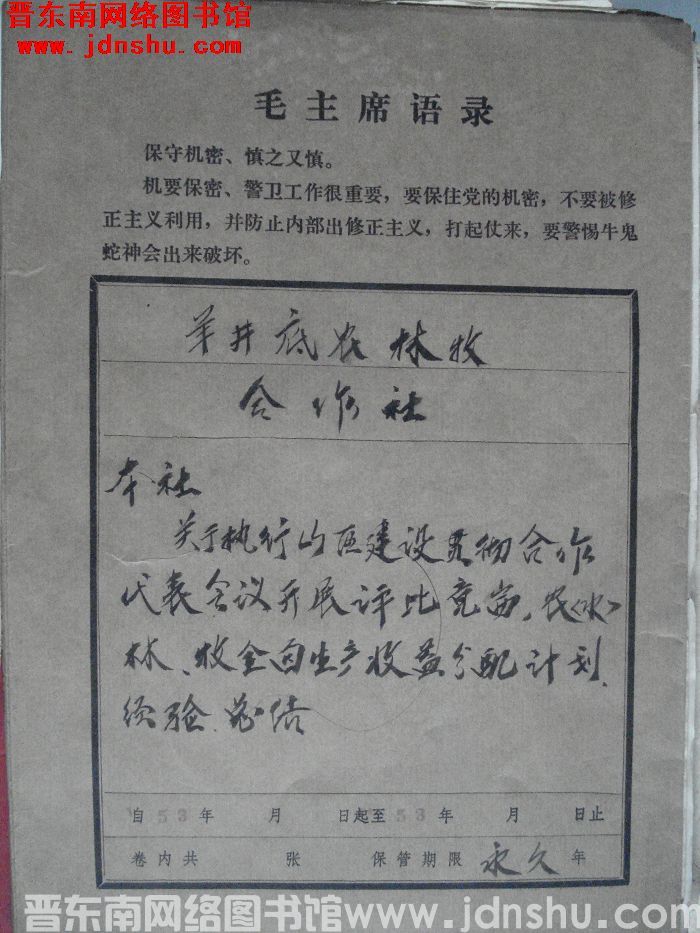 晋东南网络图书馆
www.jdnshu.com
毛主席语录
保守机密、慎之又慎。
机要保密、警卫工作很重要，要保住党的机密，不要被修
正主义利用，并防止内部出修正主义，打起仗来，要警惕牛鬼
蛇神会出来破坏。
羊井底农林牧
合作社
本社
关于执行山区建设贯彻合作
代表会议开展评比竞高，农〈水〉
林、牧全面生产收益分配计划、
经验总结
自53年 月 日起至53年 月 日止
卷内共 张 保管期限 永久 年
晋东南网络图书馆www.jdnshu.com